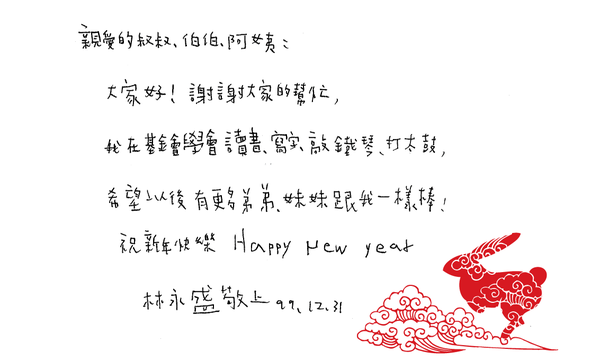 親愛的叔叔、伯伯、阿姨：
大家好！謝謝大家的幫忙，
我在基金會學會讀書、寫字、敲鐵琴、打太鼓，
希望以後有更多弟弟、妹妹跟我一樣棒！
祝新年快樂 Happy New year
林永盛敬上 99、12.31